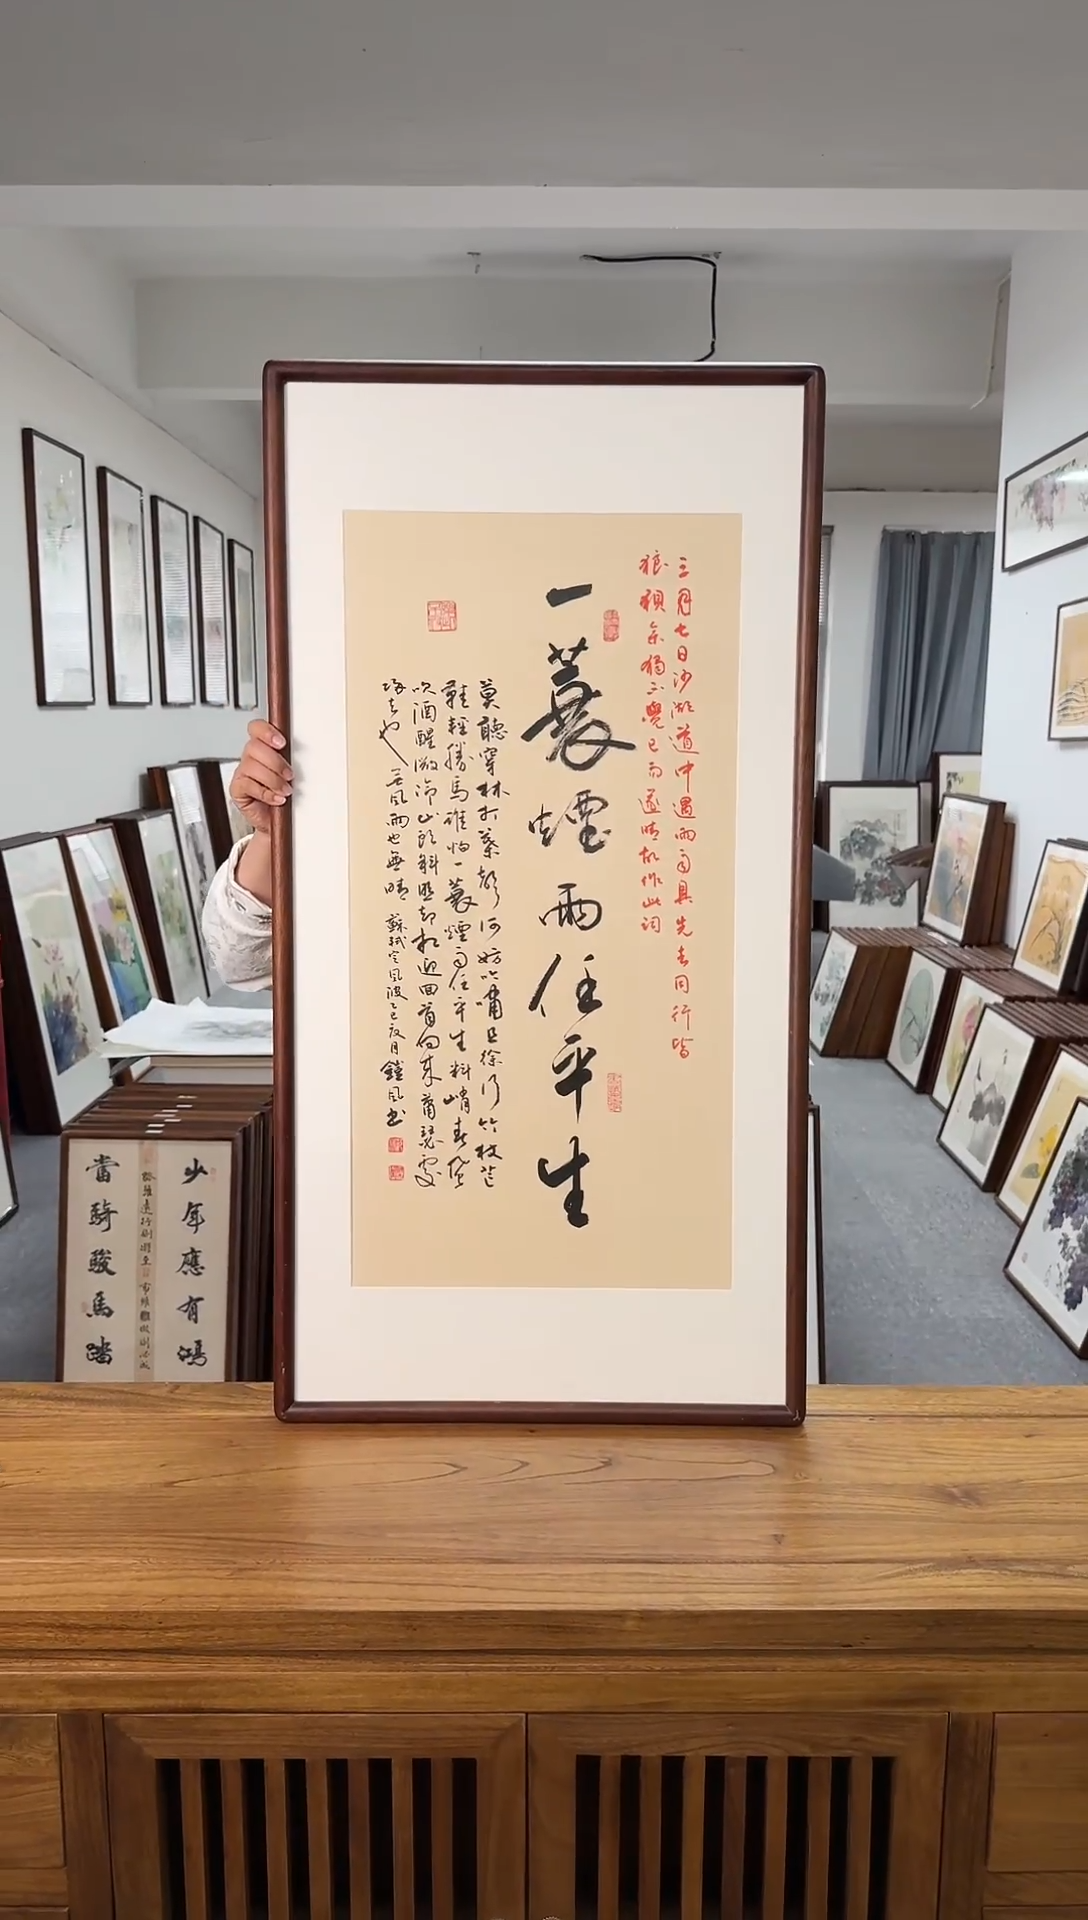 三月七日沙湖道中遇雨雨具先去同行皆
狼狽余獨不覺已而遂晴故作此詞
一蓑煙雨任平生
莫聽穿林打葉聲何妨吟嘯且徐行竹杖芒
鞋輕勝馬誰怕一蓑煙雨任平生料峭春風
吹酒醒微冷山頭斜照却相迎回首向來蕭瑟處
歸去也無風雨也無晴 蘇軾定風波乙巳
月
風書
少年應有鴻
當騎駿馬踏